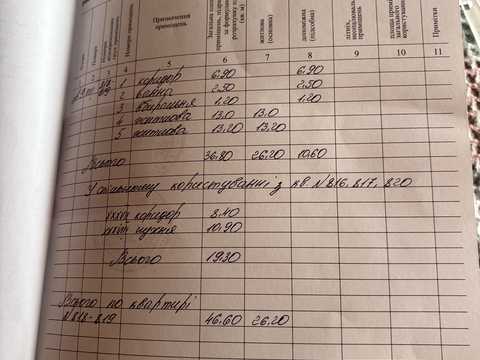 Призначення приміщень
житлова (основна)
допоміжна (підсобна)
Примітки
5 6 7 8 9 10 11
1 коридор 6.90 6.90
2 ванна 2.50 2.50
3 вбиральня 1.20 1.20
4 житлова 13.0 13.0
5 житлова 13.20 13.20
Всього 36.80 26.20 10.60
У спільному користуванні з кв. N 816, 817, 820
XXXVII коридор 8.40
XXXVIII кухня 10.90
Всього 19.30
Всього по квартирі
N 818-819 46.60 26.20